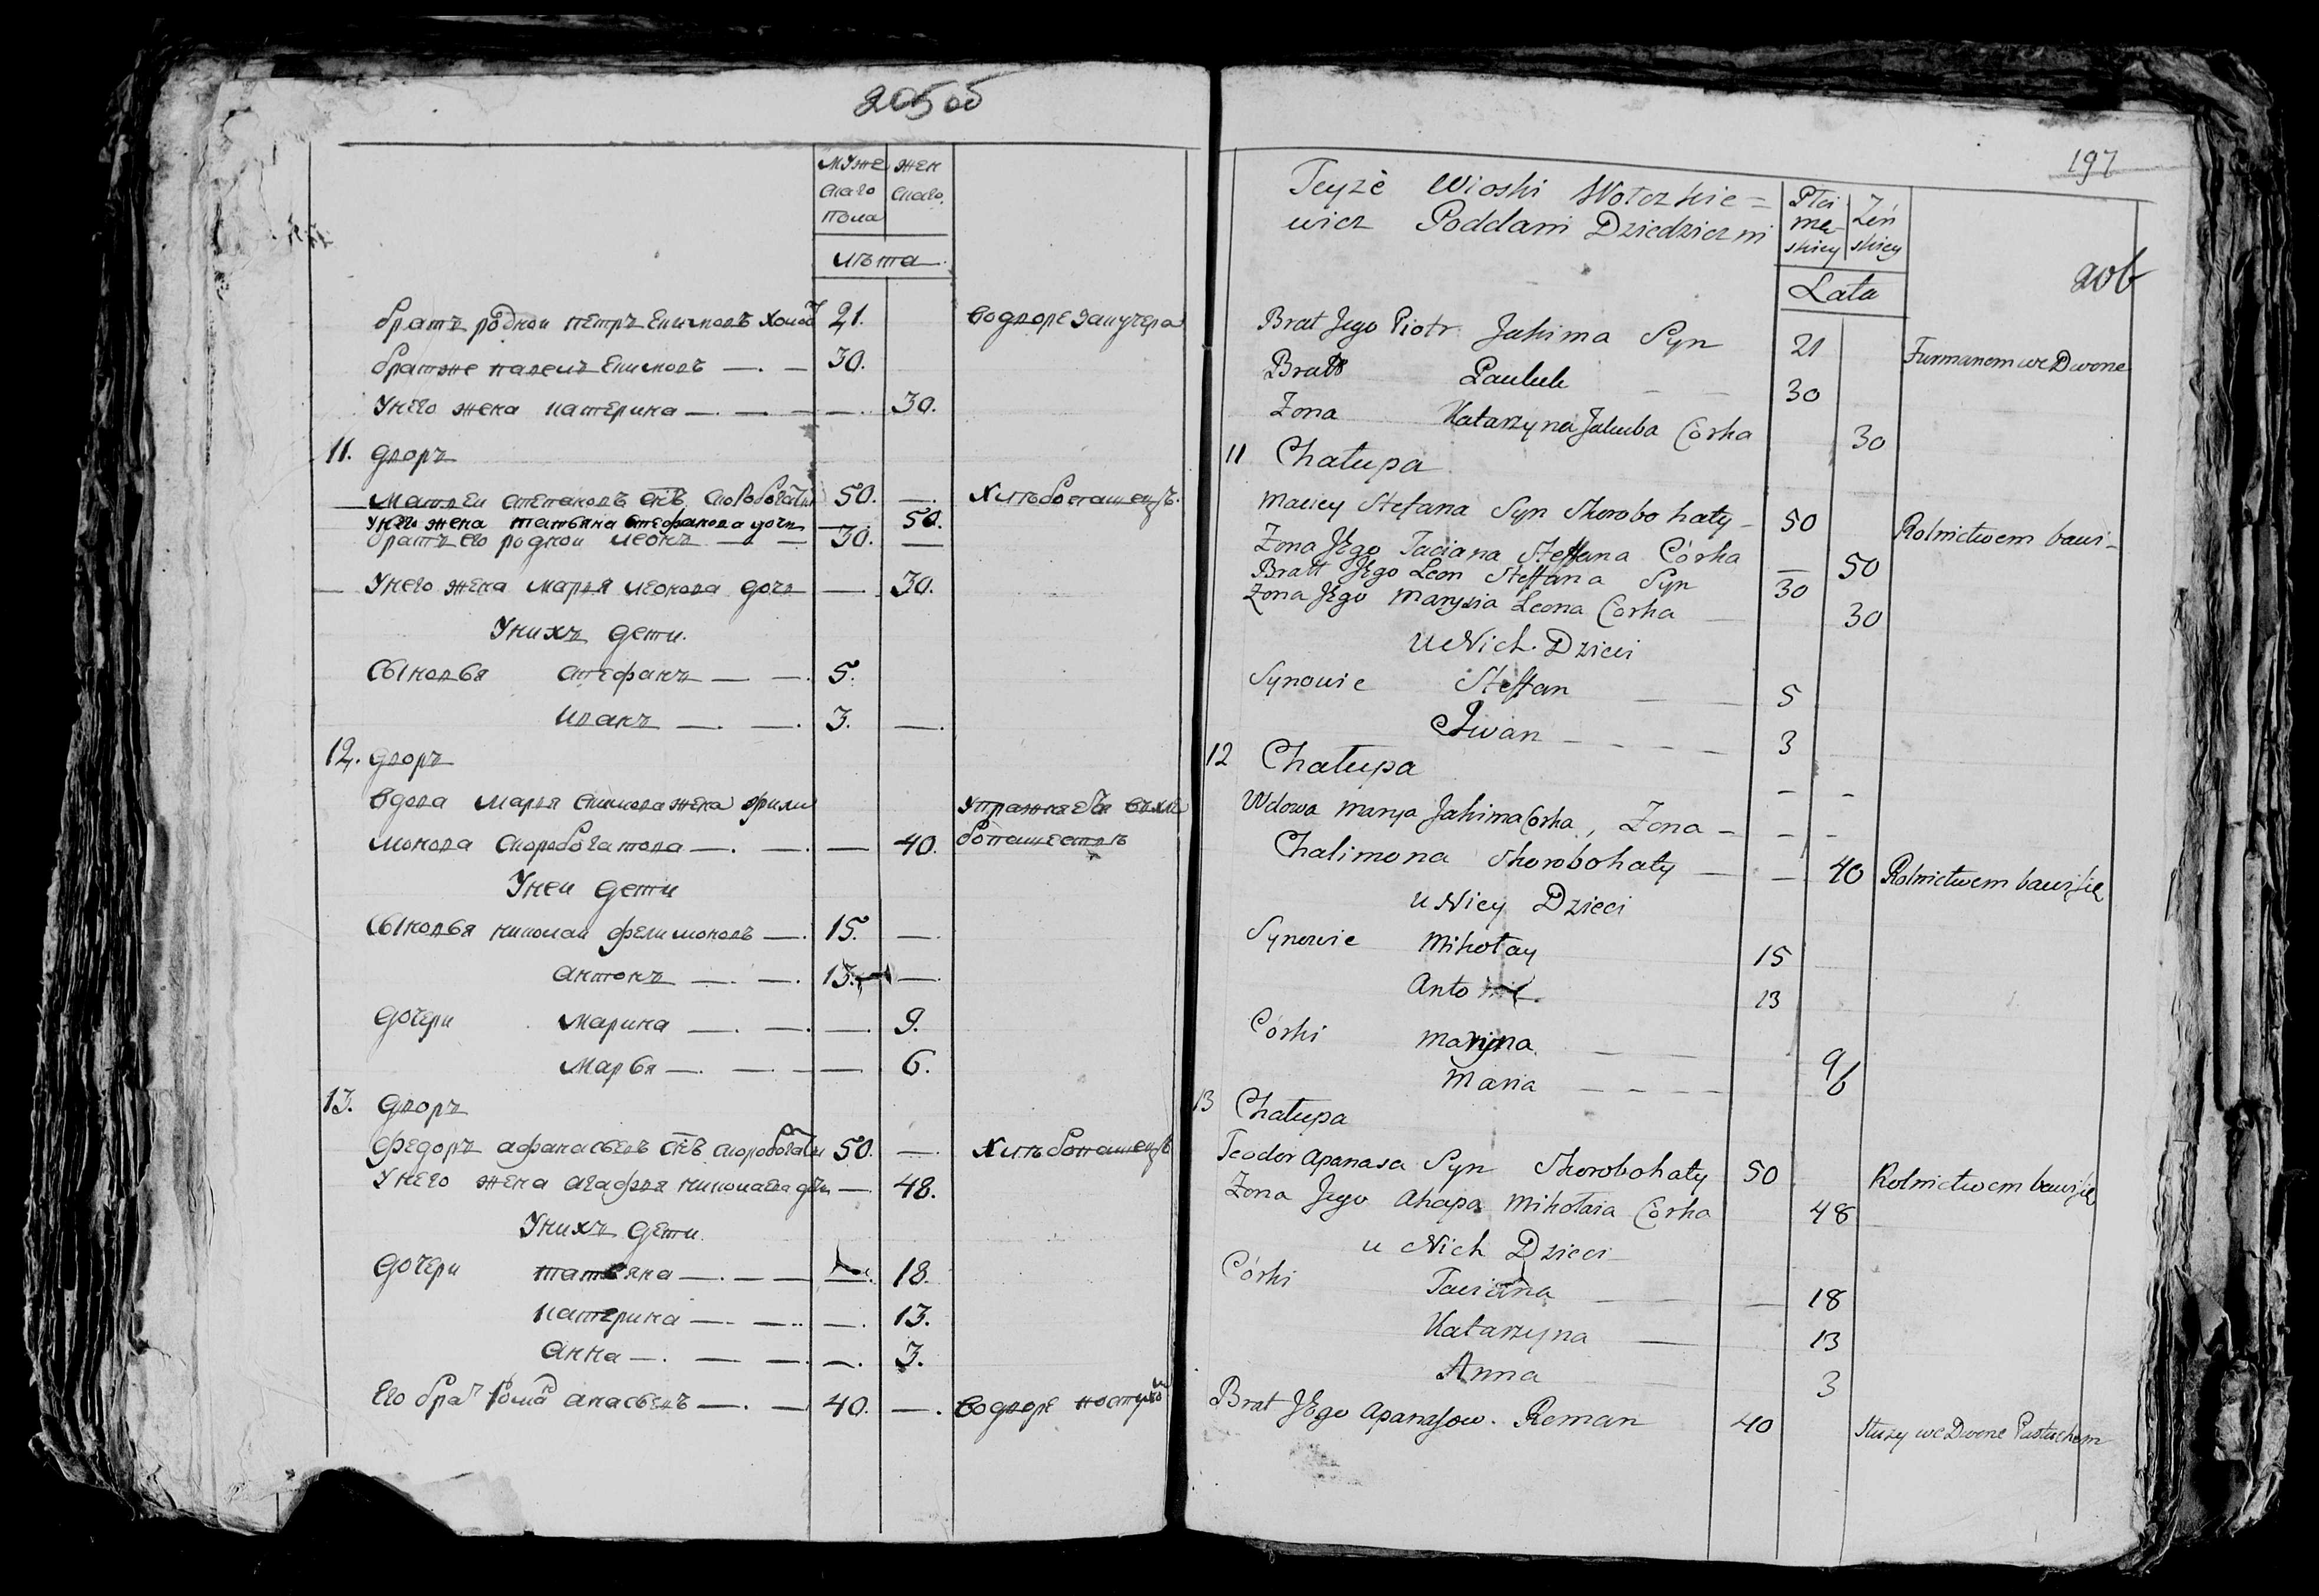 205 об
муже жен
скаго скаго.
пола
лѣта
братъ родной петръ Екимовъ 21. водворе За кучера
братже павелъ Екимовъ — . — 30.
Унего жена катерина — . — — . 30.
11. дворъ
Матвеи степановъ снъ скоробогатый 50. — . Хлѣбопашецъ.
Унего жена татьяна стефанова дочь — . 50.
братъ его родной леонъ — — 30. —
Унего жена марья леонова дочь — . 30.
Унихъ дети.
Сыновья стефанъ — — . 5.
иванъ — . — . 3. — .
12. дворъ
вдова марья Екимова жена фили
монова скоробогатова — . — . — 40. Упражняется вхле
бопашестве
Уней дети
Сыновья николай фелимоновъ — . 15. — .
антонъ — . — . 13. — .
дочери марина — . — . — . 9.
марья — . — — — 6.
13. дворъ
Федоръ афанасьевъ снъ скоробогатый 50. — . Хлѣбопашецъ
Унего жена агафья николаева дочь — 48.
Унихъ дети.
дочери татьяна — . — — — . 18.
катерина — . — .. — . 13.
анна — . — — . — . 3.
Его брат Роман апасьевъ — . — 40. — . водворе пастухом
197
206
Teyże Wioski Wołczkie=
wicz Poddani Dziedziczni
Płci Żeń
mę- skiey
skiey
Lata
Brat Jego Piotr Jakima Syn 21 Furmanem we Dworze
Bratt Pauluk — — 30
Zona Katarzyna Jakuba Córka 30
11 Chałupa
Maciey Stefana Syn Skorobohaty — 50 Rolnictwem bawi —
Zona Jego Taciana Steffana Córka — 50
Bratt Jego Leon Steffana Syn 30
Zona Jego Marysia Leona Córka — 30
U Nich Dzieci
Synowie Steffan — — 5
Iwan — — — — 3
12 Chałupa
Wdowa Marya Jakima Corka, Zona — — —
Chalimona Skorobohaty — — 40 Rolnictwem bawi się
u Niey Dzieci
Synowie Mikołay 15
Anto 13
Córki Maryna — — 9
Maria — — — — 6
13 Chałupa
Teodor Apanasa Syn Skorobohaty 50 Rolnictwem bawi się
Zona Jego Ahapa Mikołaia Córka 48
u Nich Dzieci
Córki Taciana — — — 18
Katarzyna — 13
Anna 3
Brat Jego Apanasow. Roman 40 Służy we Dworze Pastuchem